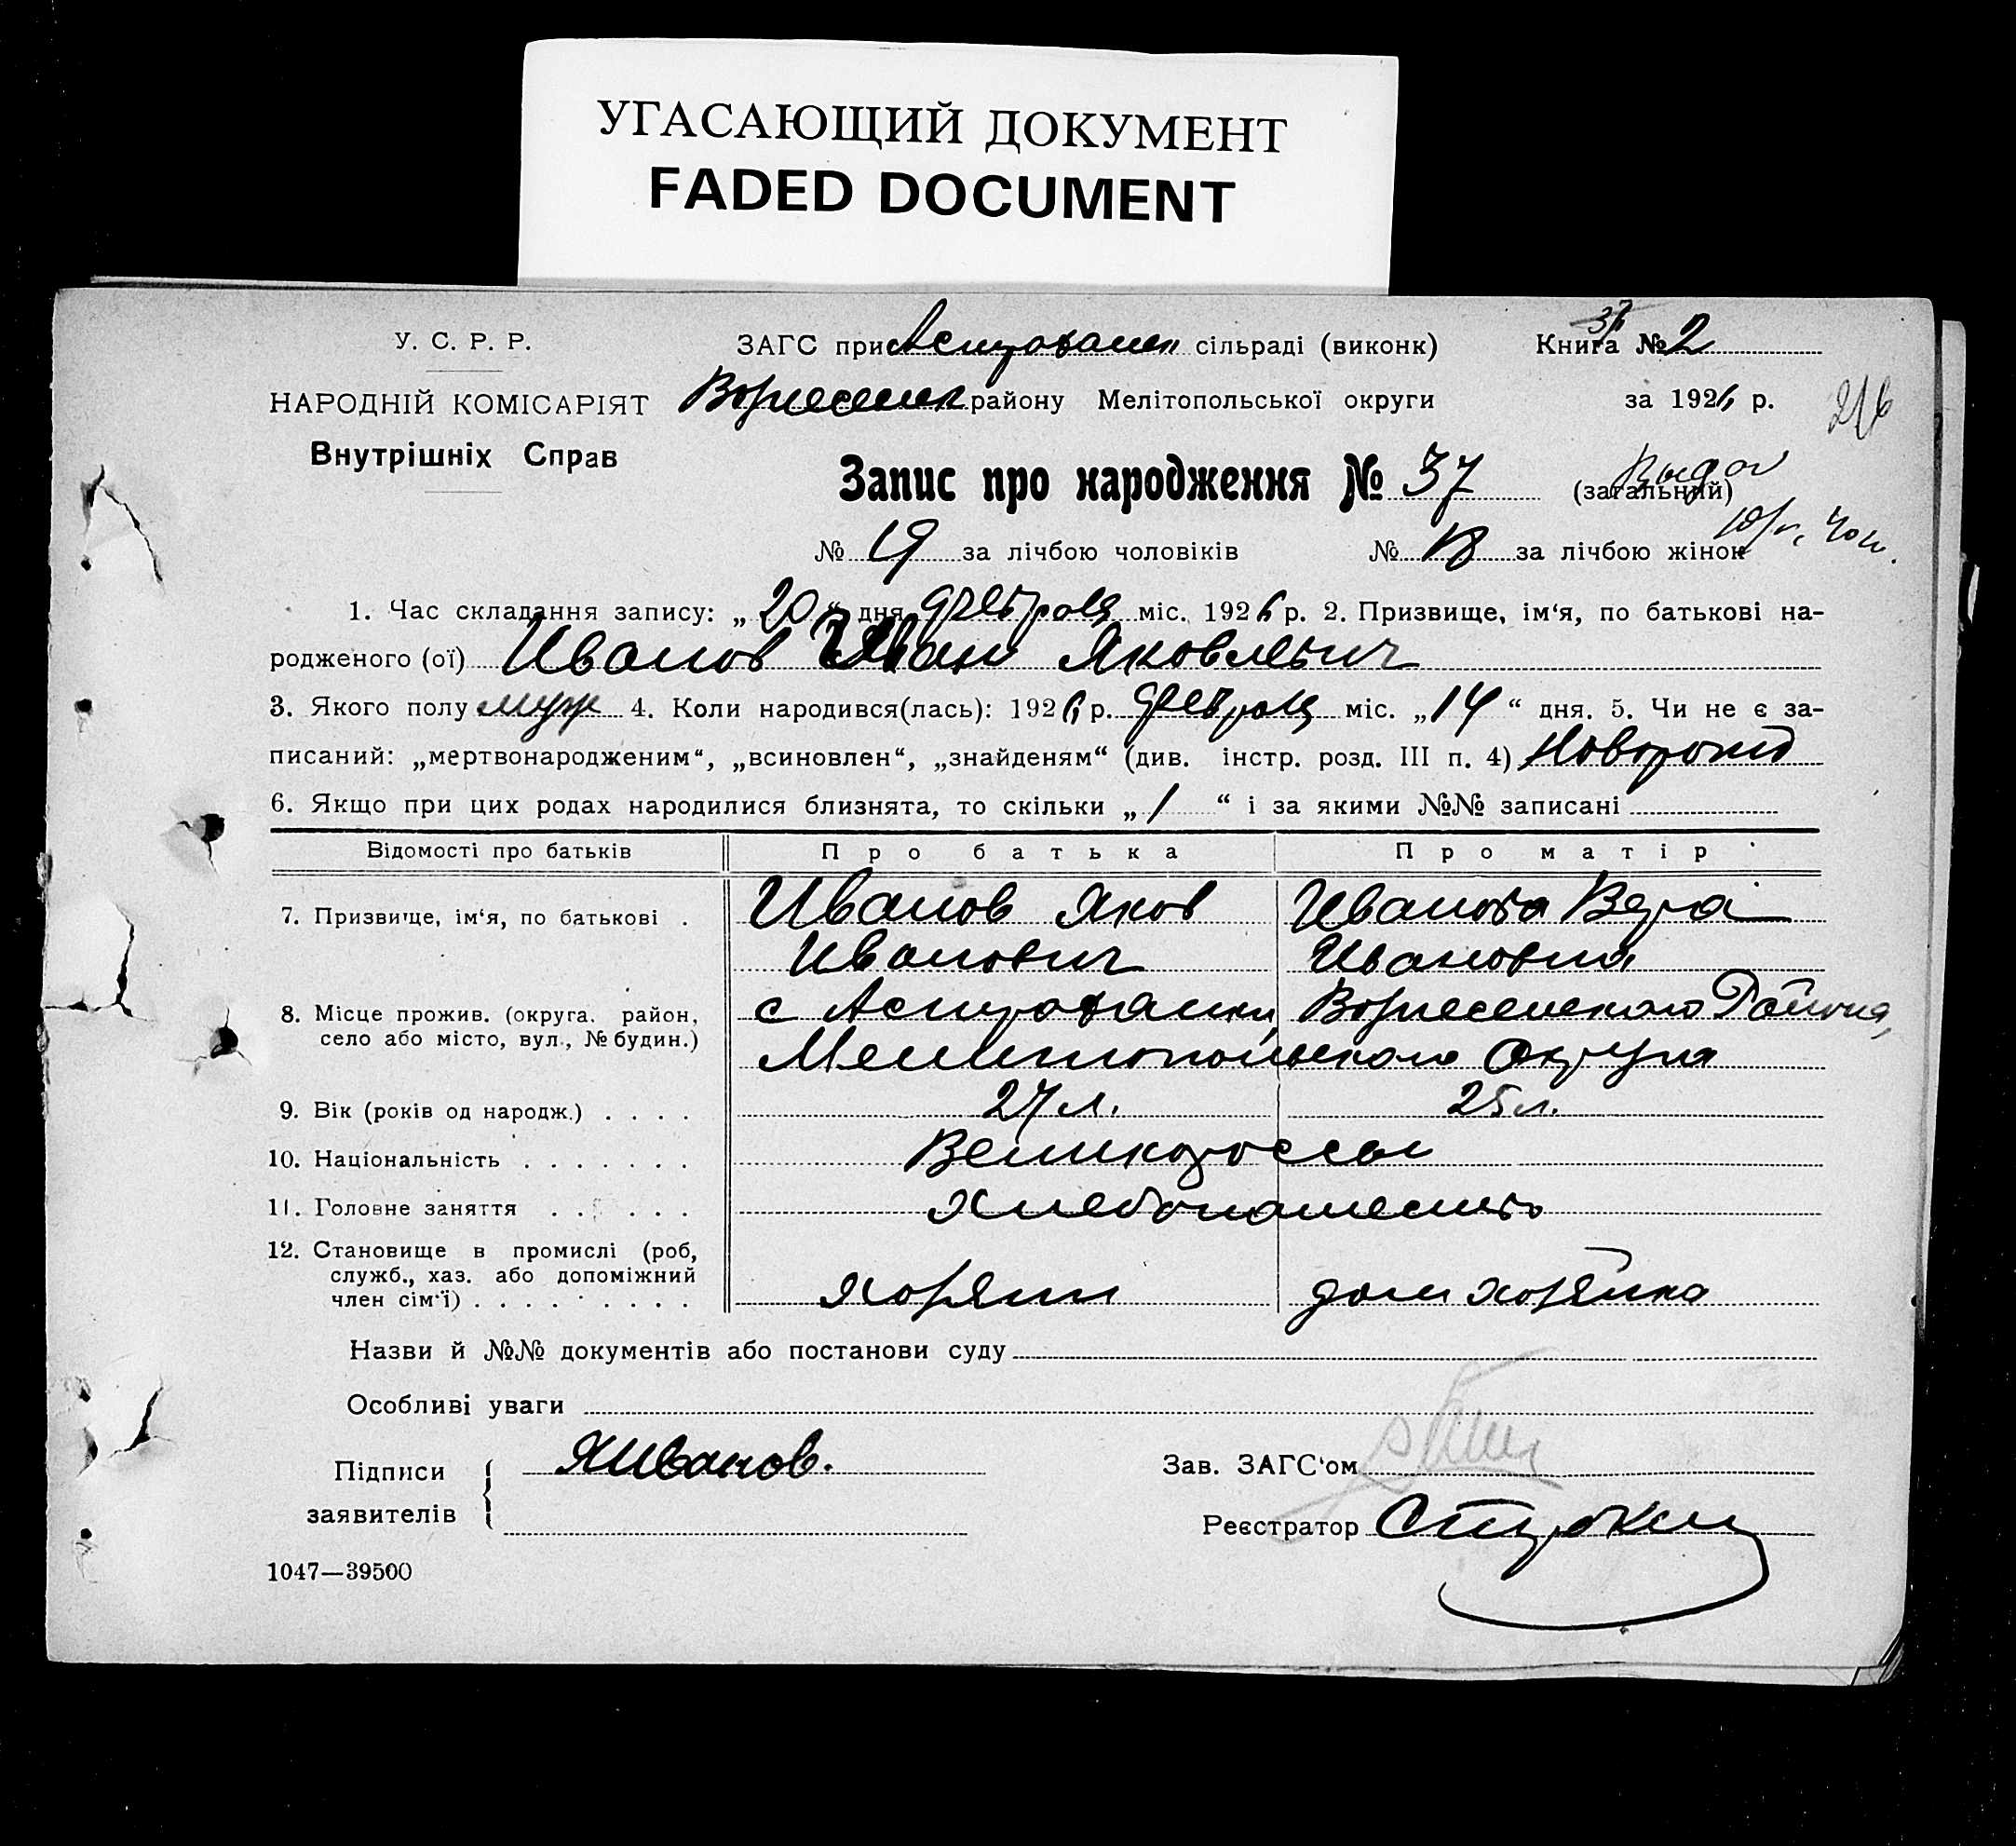 УГАСАЮЩИЙ ДОКУМЕНТ
FADED DOCUMENT
У. С. Р. Р.
НАРОДНІЙ КОМІСАРІЯТ
Внутрішніх Справ
ЗАГС при Астрован сільраді (виконк)
Вознесенк району Мелітопольської округи
Книга № 2
за 1926 р.
216
Запис про народження № 37 (загальний)
Выдан
№ 19 за лічбою чоловіків № 18 за лічбою жінок
1. Час складання запису: „20“ дня Февраля міс. 1926 р. 2. Призвище, ім‘я, по батькові на-
родженого (ої) Иванов Иван Яковлевич
3. Якого полу муж 4. Коли народився(лась): 1926 р. Февраля міс. „14“ дня. 5. Чи не є за-
писаний: „мертвонародженим“, „всиновлен“, „знайденям“ (див. інстр. розд. III п. 4) Неворожд
6. Якщо при цих родах народилися близнята, то скільки „1“ і за якими №№ записані
Відомості про батьків Про батька Про матір
7. Призвище, ім‘я, по батькові . Иванов Яков Иванова Вера
Иванович Ивановна
8. Місце прожив. (округа. район, с Астрованки, Вознесенского Района,
село або місто, вул., № будин.) Мелитопольского Округа
9. Вік (років од народж.) . . . . 27 л. 25 л.
10. Національність . . . . . . . Великороссы
11. Головне заняття . . . . . . Хлебопашество
12. Становище в промислі (роб,
служб., хаз. або допоміжний
член сім‘ї) . . . . . . . . . хозяин дом хозяйка
Назви й №№ документів або постанови суду
Особливі уваги
Підписи
заявителів
ЯИванов.
Зав. ЗАГС‘ом
Реєстратор
1047—39500